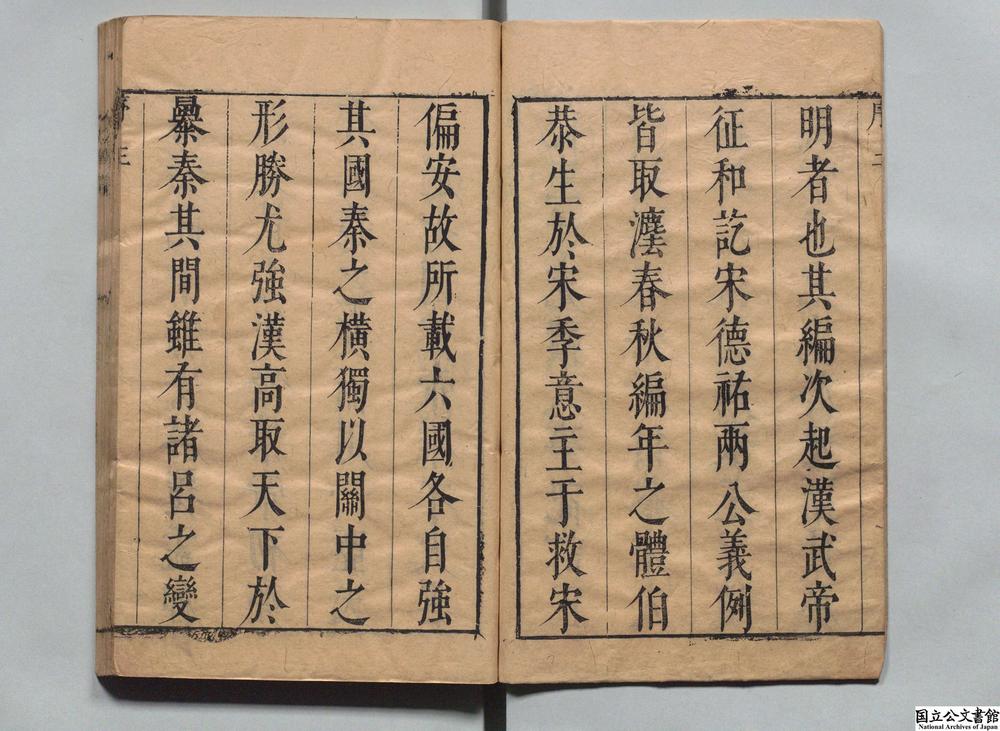 明者也其編次起漢武帝
征和訖宋德祐兩公義例
皆取灋春秋編年之體伯
恭生於宋季意主于救宋
偏安故所載六國各自強
其國秦之橫獨以關中之
形勝尤強漢高取天下於
暴秦其間雖有諸呂之變
序 三
国立公文書館
National Archives of Japan